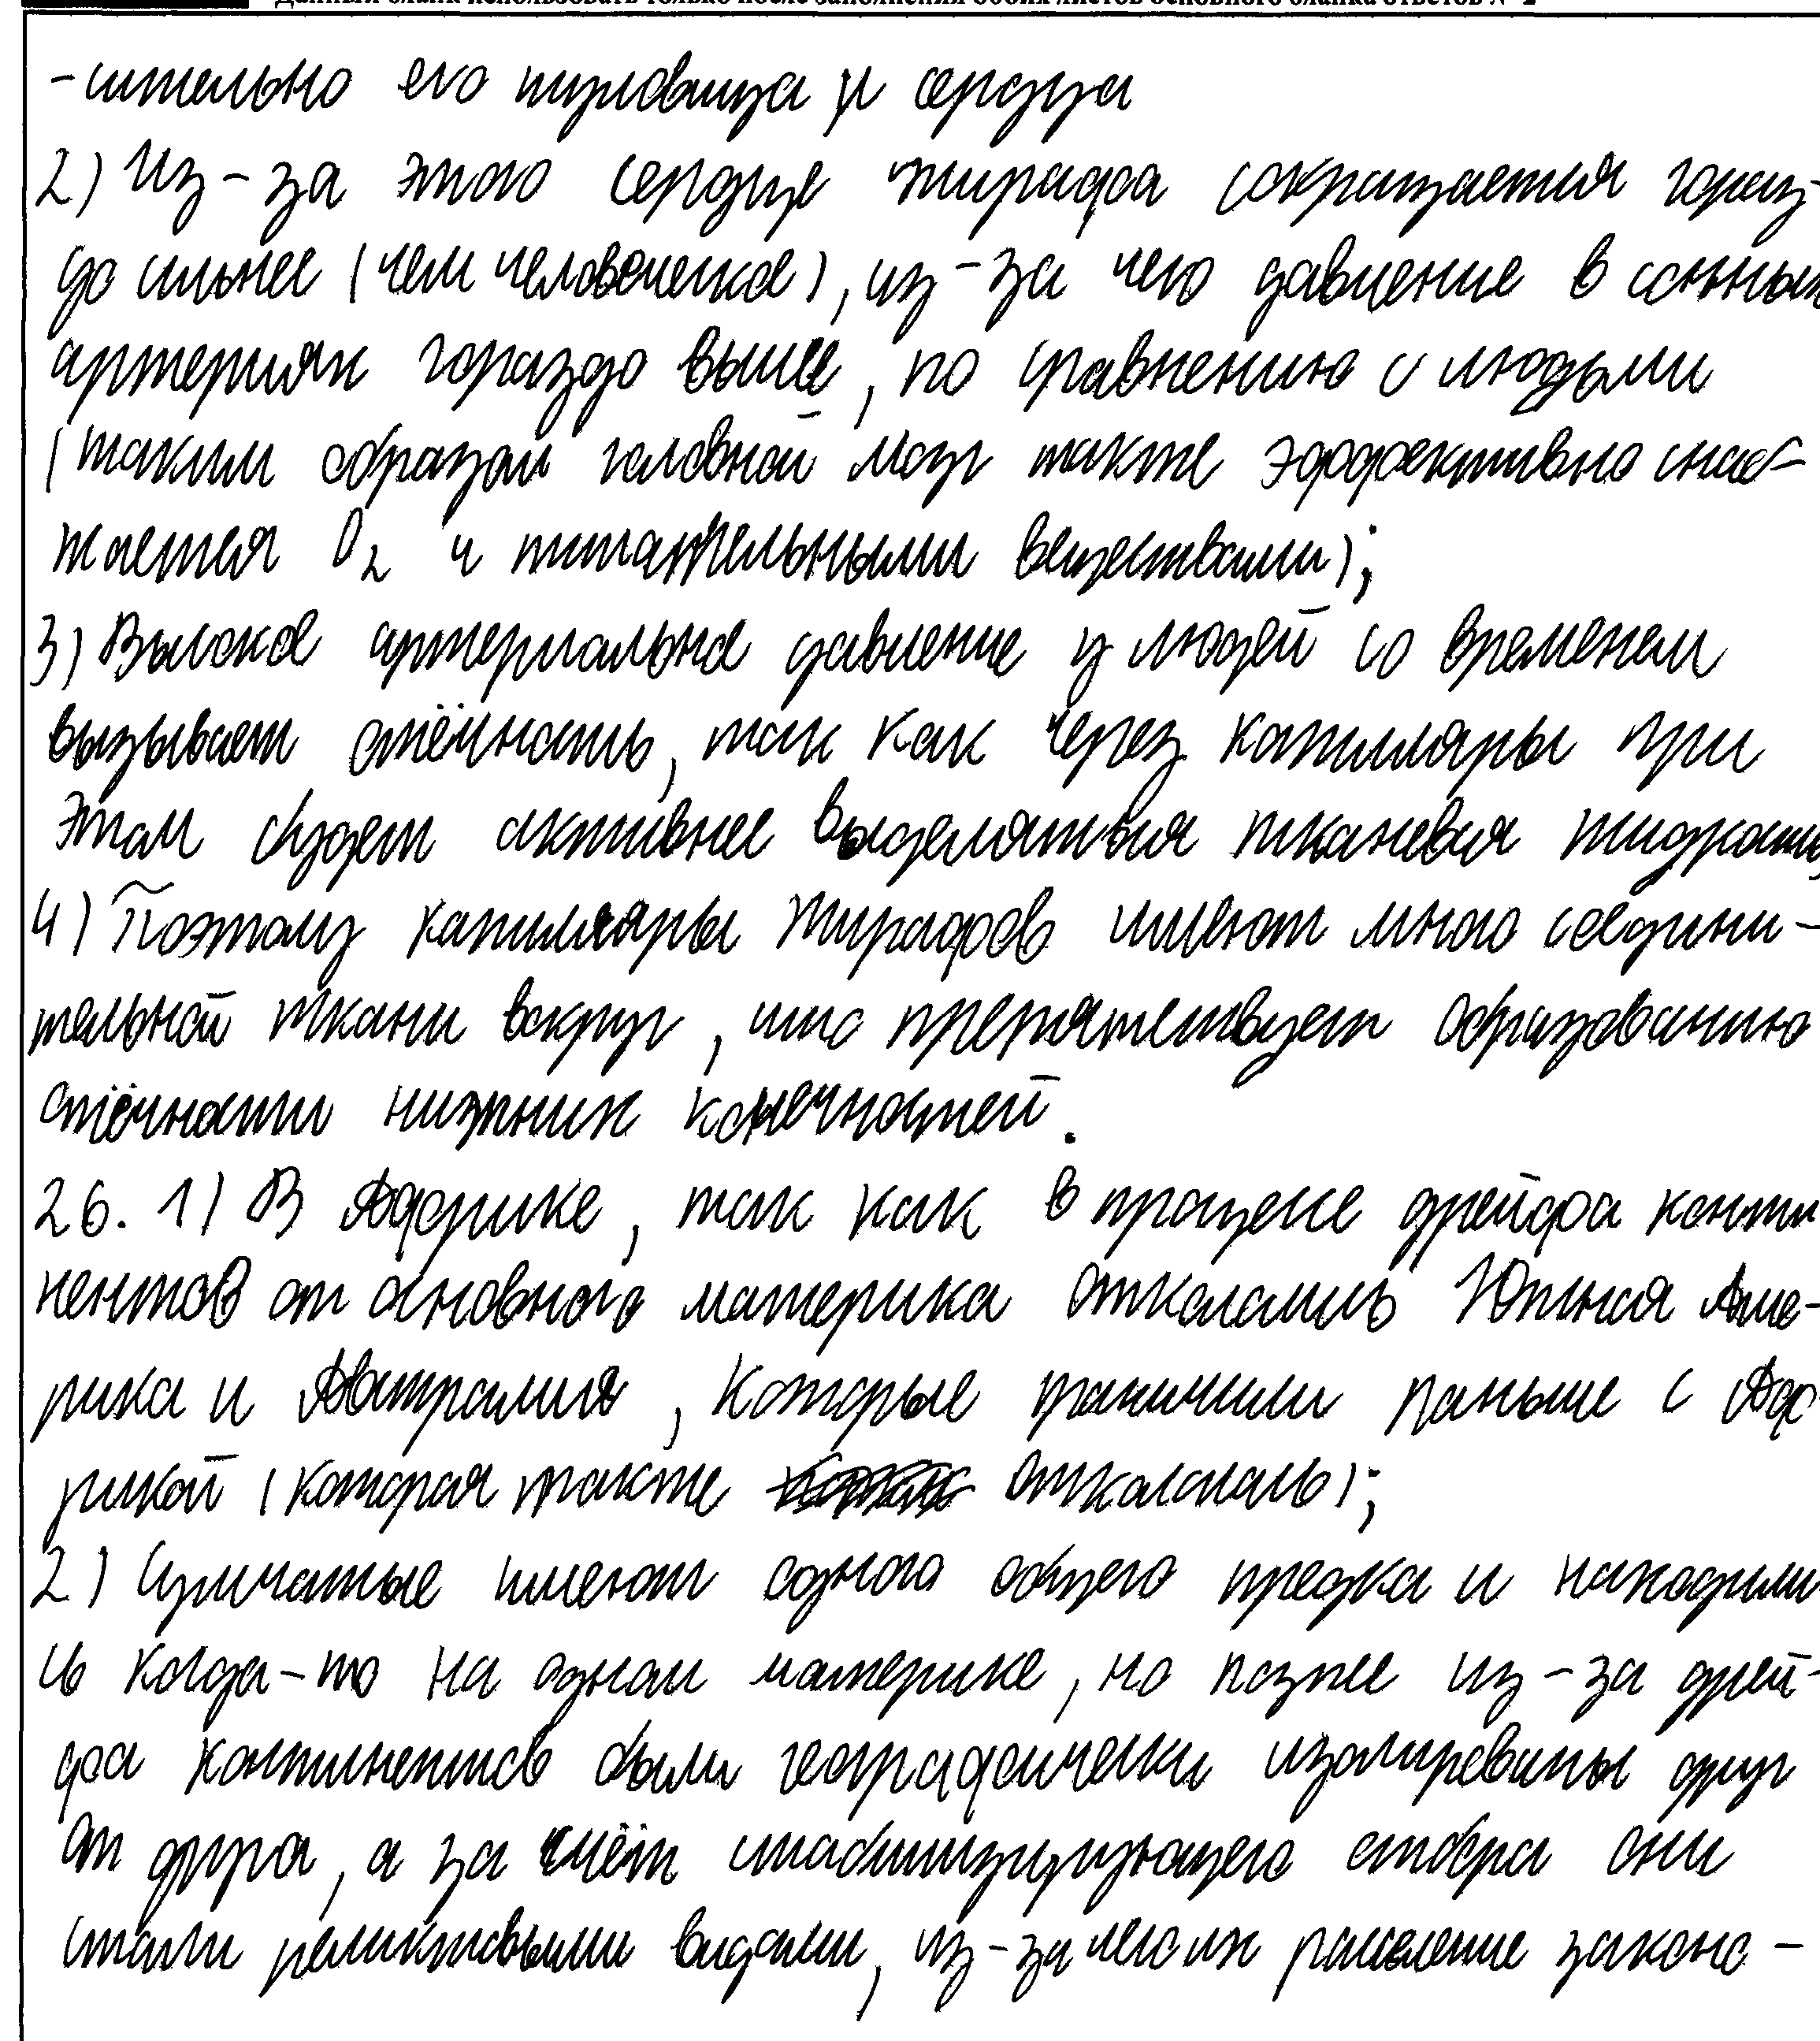 Данный бланк использовать только после заполнения обоих листов основного бланка ответов № 2
-сительно его туловища и сердца
2) Из-за этого сердце жирафа сокращается гораз-
до сильнее (чем человеческое), из-за чего давление в сонных
артериях гораздо выше, по сравнению с людьми
(таким образом головной мозг также эффективно снаб-
жается O2 и питательными веществами);
3) Высокое артериальное давление у людей со временем
вызывает отёчность, так как через капилляры при
этом будет активнее выделяться тканевая жидкость
4) Поэтому капилляры жирафов имеют много соедини-
тельной ткани вокруг, что препятствует образованию
отёчности нижних конечностей.
26. 1) В Африке, так как в процессе дрейфа конти
нентов от основного материка откололись Южная Аме-
рика и Австралия, которые граничили раньше с Аф
рикой (которая также откололась);
2) Сумчатые имеют одного общего предка и находили
сь когда-то на одном материке, но позже из-за дрей-
фа континентов были географически изолированы друг
от друга, а за счёт стабилизирующего отбора они
стали реликтовыми видами, из-за чего их расселение законо-